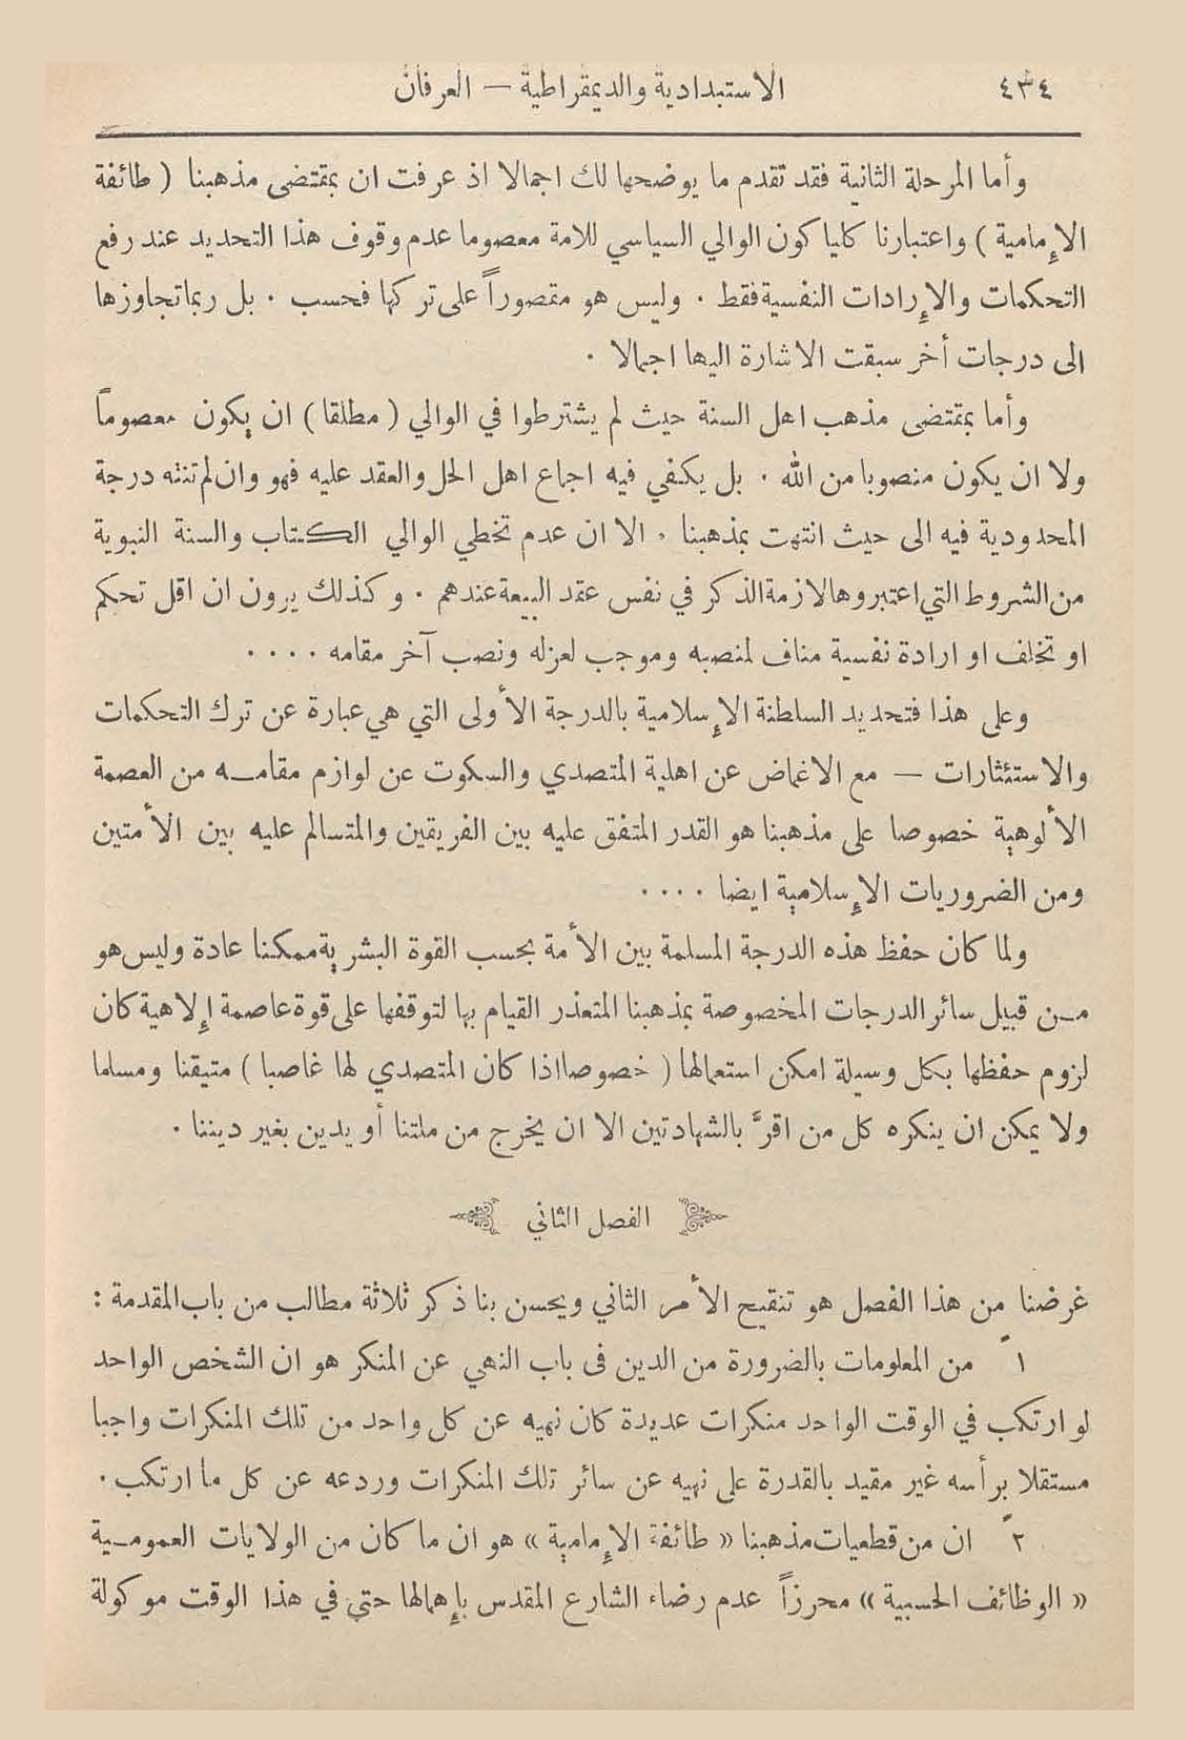 ٤٣٤ الاستبدادية والديمقراطية — العرفان
وأما المرحلة الثانية فقد تقدم ما يوضحها لك اجمالا اذ عرفت ان بمقتضى مذهبنا ( طائفة
الإمامية ) واعتبارنا كليا كون الوالي السياسي للامة معصوما عدم وقوف هذا التحديد عند رفع
التحكمات والإرادات النفسية فقط . وليس هو مقصوراً على تركها فحسب . بل ربما تجاوزها
الى درجات أخر سبقت الاشارة اليها اجمالا .
وأما بمقتضى مذهب اهل السنة حيث لم يشترطوا في الوالي ( مطلقا ) ان يكون معصوماً
ولا ان يكون منصوبا من الله . بل يكفي فيه اجماع اهل الحل والعقد عليه فهو وان لم تنته درجة
المحدودية فيه الى حيث انتهت بمذهبنا . الا ان عدم تخطي الوالي الكتاب والسنة النبوية
من الشروط التي اعتبروها لازمة الذكر في نفس عقد البيعة عندهم . وكذلك يرون ان اقل تحكم
او تخلف او ارادة نفسية مناف لمنصبه وموجب لعزله ونصب آخر مقامه . . . .
وعلى هذا فتحديد السلطنة الإسلامية بالدرجة الأولى التي هي عبارة عن ترك التحكمات
والاستئثارات — مع الاغماض عن اهلية المتصدي والسكوت عن لوازم مقامـه من العصمة
الألوهية خصوصا على مذهبنا هو القدر المتفق عليه بين الفريقين والمتسالم عليه بين الأمتين
ومن الضروريات الإسلامية ايضا . . . .
ولما كان حفظ هذه الدرجة المسلمة بين الأمة بحسب القوة البشرية ممكنا عادة وليس هو
مـن قبيل سائر الدرجات المخصوصة بمذهبنا المتعذر القيام بها لتوقفها على قوة عاصمة إلاهية كان
لزوم حفظها بكل وسيلة امكن استعمالها ( خصوصا اذا كان المتصدي لها غاصبا ) متيقنا ومسلما
ولا يمكن ان ينكره كل من اقرَّ بالشهادتين الا ان يخرج من ملتنا أو يدين بغير ديننا .
الفصل الثاني
غرضنا من هذا الفصل هو تنقيح الأمر الثاني ويحسن بنا ذكر ثلاثة مطالب من باب المقدمة :
١ً من المعلومات بالضرورة من الدين في باب النهي عن المنكر هو ان الشخص الواحد
لو ارتكب في الوقت الواحد منكرات عديدة كان نهيه عن كل واحد من تلك المنكرات واجبا
مستقلا برأسه غير مقيد بالقدرة على نهيه عن سائر تلك المنكرات وردعه عن كل ما ارتكب .
٢ً ان من قطعيات مذهبنا « طائفة الإمامية » هو ان ما كان من الولايات العمومـية
« الوظائف الحسبية » محرزاً عدم رضاء الشارع المقدس بإهمالها حتى في هذا الوقت موكولة